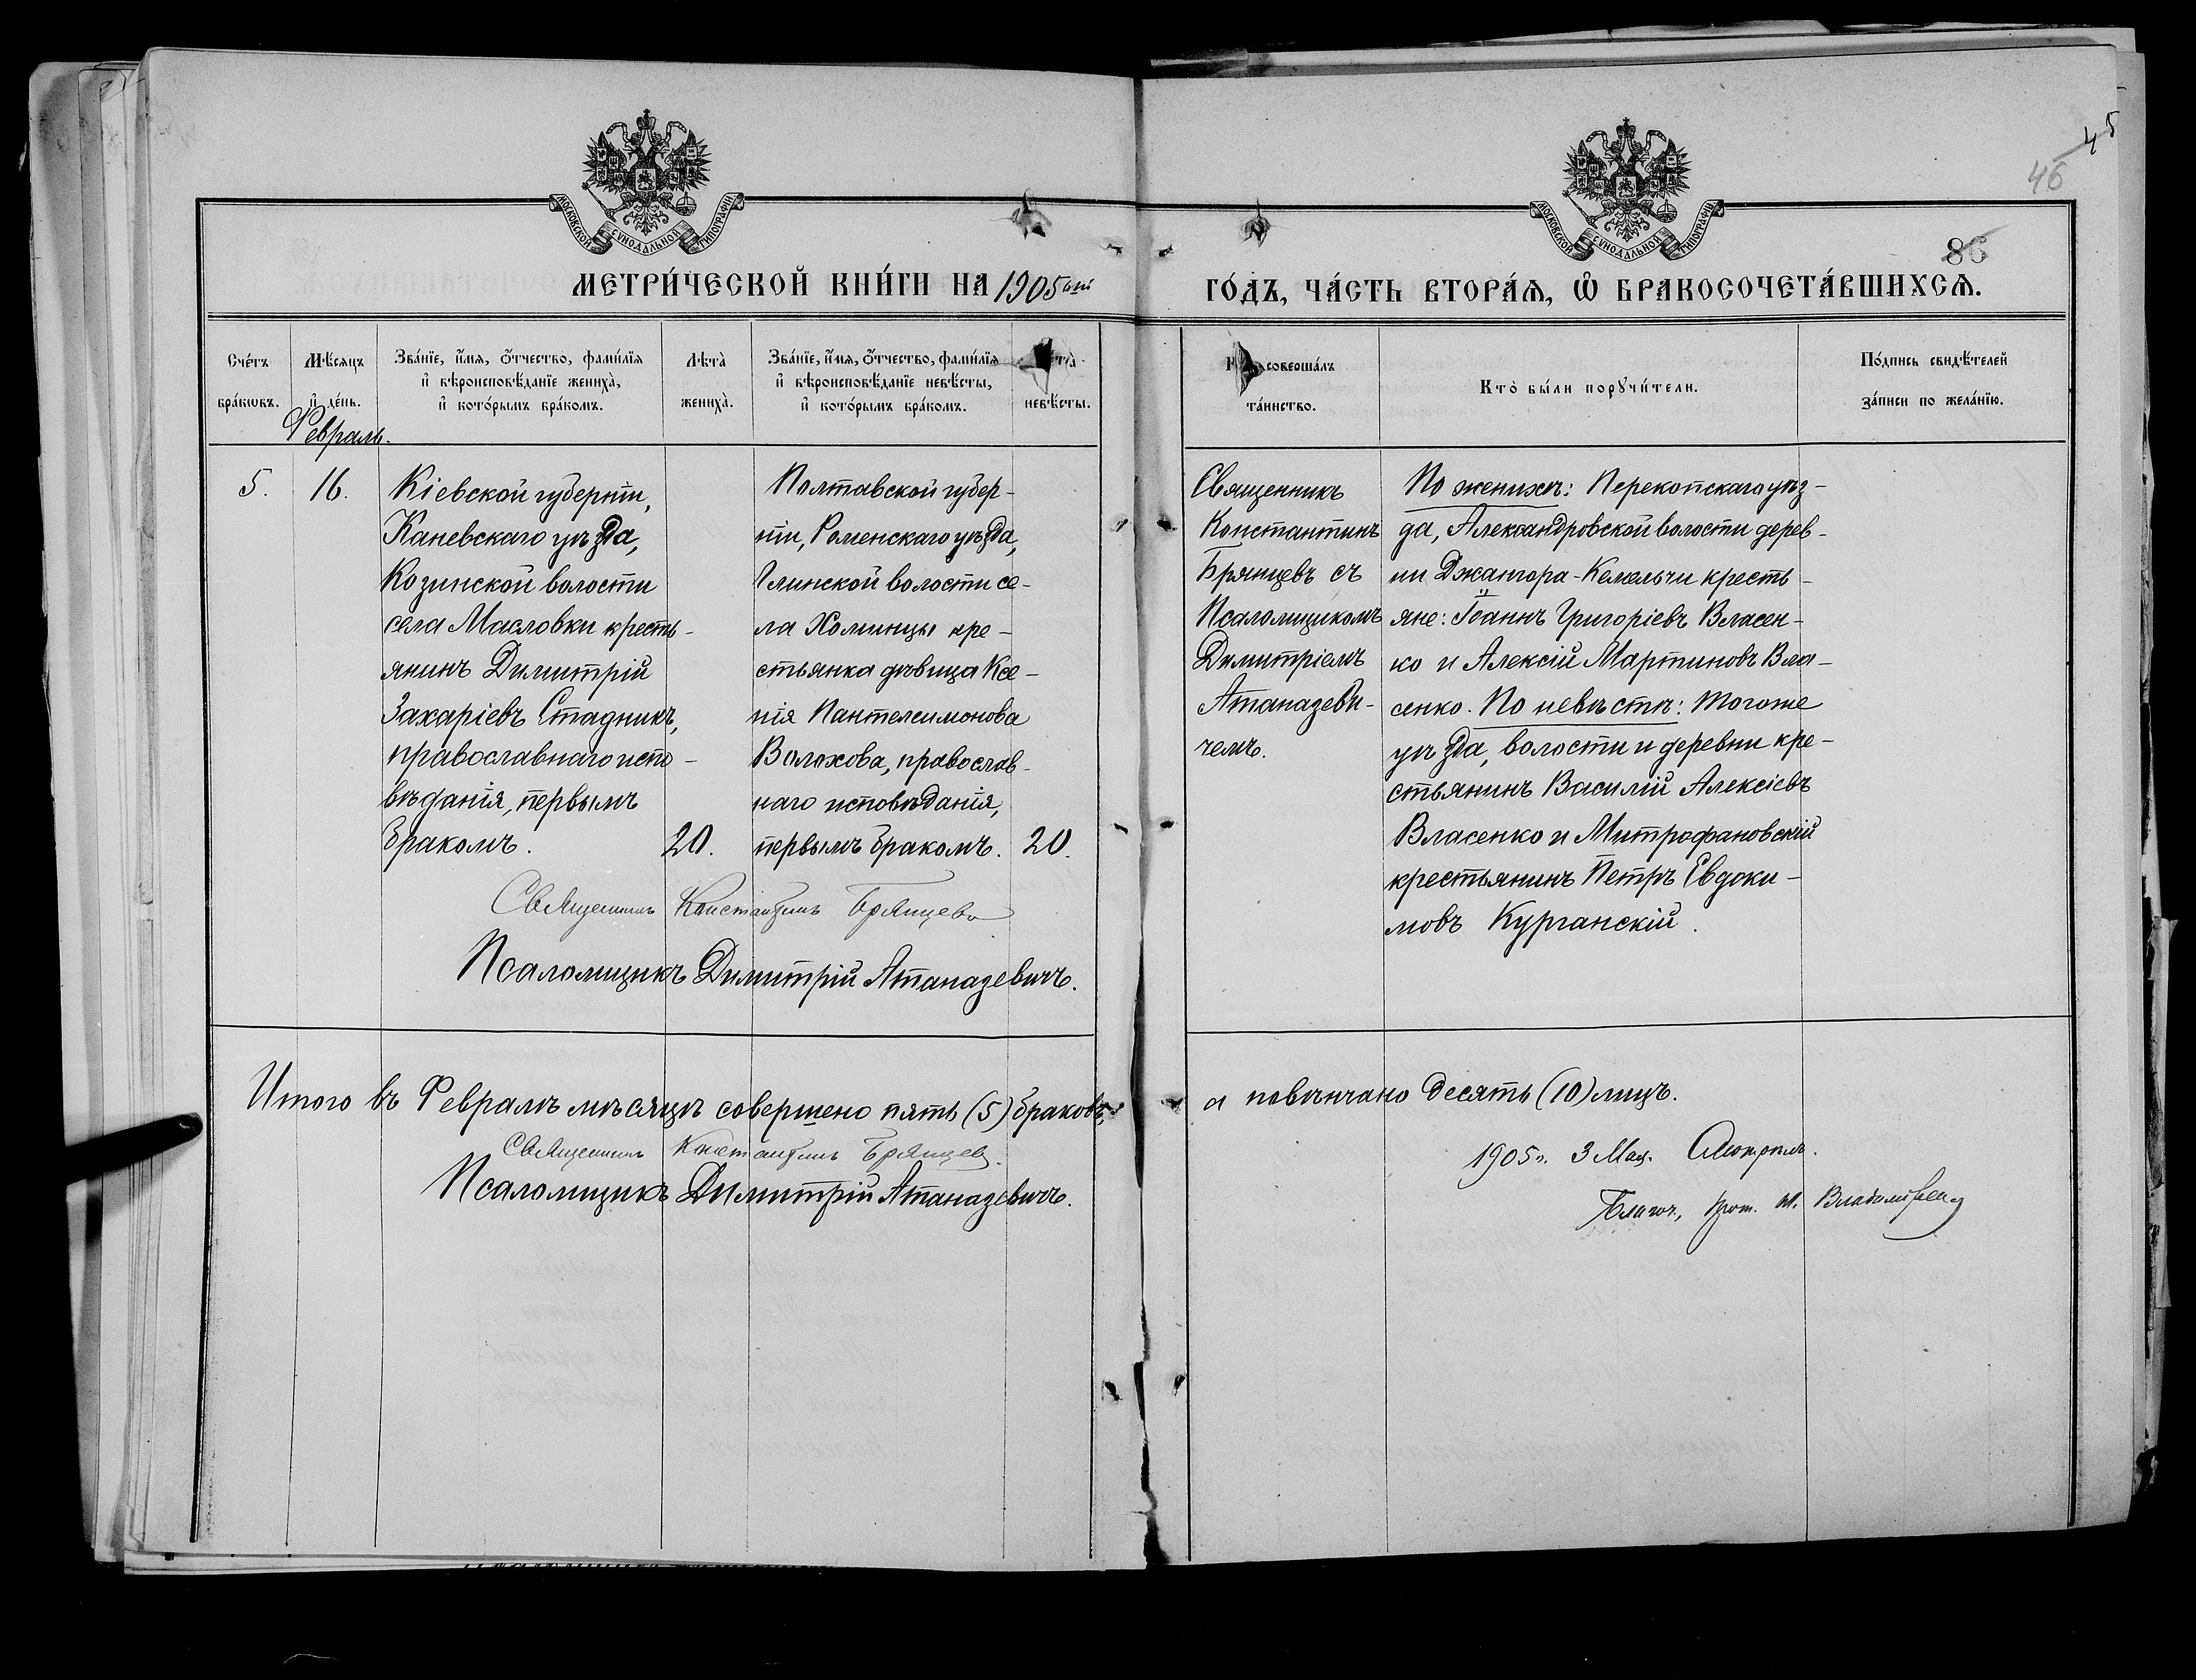 45
46
86
МОСКОВСКОЙ СѴНОДАЛЬНОЙ ТИПОГРАФІИ
МОСКОВСКОЙ СѴНОДАЛЬНОЙ ТИПОГРАФІИ
МЕТРИ́ЧЕСКОЙ КНИ́ГИ НА 1905ый
ГО́ДЪ, ЧА́СТЬ ВТОРА́Ѧ, Ѡ҆ БРАКОСОЧЕТА́ВШИХСѦ.
Сче́тъ
бра́кѡвъ.
Мѣ́сяцъ
и҆ де́нь.
Зва́нїе, и҆́мя, ѻ҆́тчество, фами́лїя
и҆ вѣроисповѣ́данїе жениха̀,
и҆ кото́рымъ бра́комъ.
Лѣта̀
жениха̀.
Зва́нїе, и҆́мя, ѻ҆́тчество, фами́лїя
и҆ вѣроисповѣ́данїе невѣ́сты,
и҆ кото́рымъ бра́комъ.
невѣ́сты.
соверша́лъ
та́инство.
Кто̀ бы́ли порꙋчи́тели.
По́дпись свидѣ́телей
за́писи по жела́нїю.
Февраль.
5.
16.
Кіевской губерніи,
Каневскаго уѣзда,
Козинской волости
села Масловки кресть-
янинъ Димитрій
Захаріевъ Стадникъ,
православнаго испо-
вѣданія, первымъ
бракомъ.
20.
Полтавской губер-
ніи, Роменскаго уѣзда,
Глинской волости се-
ла Хоминцы кре-
стьянка дѣвица Ксе-
нія Пантелеимонова
Волохова, православ-
наго исповѣданія,
первымъ бракомъ.
20.
Священникъ
Константинъ
Брянцевъ съ
Псаломщикомъ
Димитріемъ
Атаназеви-
чемъ.
По женихѣ: Перекопскаго уѣз-
да, Александровской волости дерев-
ни Джангора-Кемельчи кресть-
яне: Іоаннъ Григоріевъ Власен-
ко и Алексій Мартиновъ Вла-
сенко. По невѣстѣ: тогоже
уѣзда, волости и деревни кре-
стьянинъ Василій Алексіевъ
Власенко и Митрофановскій
крестьянинъ Петръ Евдоки-
мовъ Курганскій.
Священникъ Константинъ Брянцевъ
Псаломщикъ Димитрій Атаназевичъ.
Итого въ Февралѣ мѣсяцѣ совершено пять (5) браковъ,
а повѣнчано десять (10) лицъ.
Священникъ Константинъ Брянцевъ.
Псаломщикъ Димитрій Атаназевичъ.
1905 г. 3 Мая. Смотрѣлъ.
Благоч., прот.